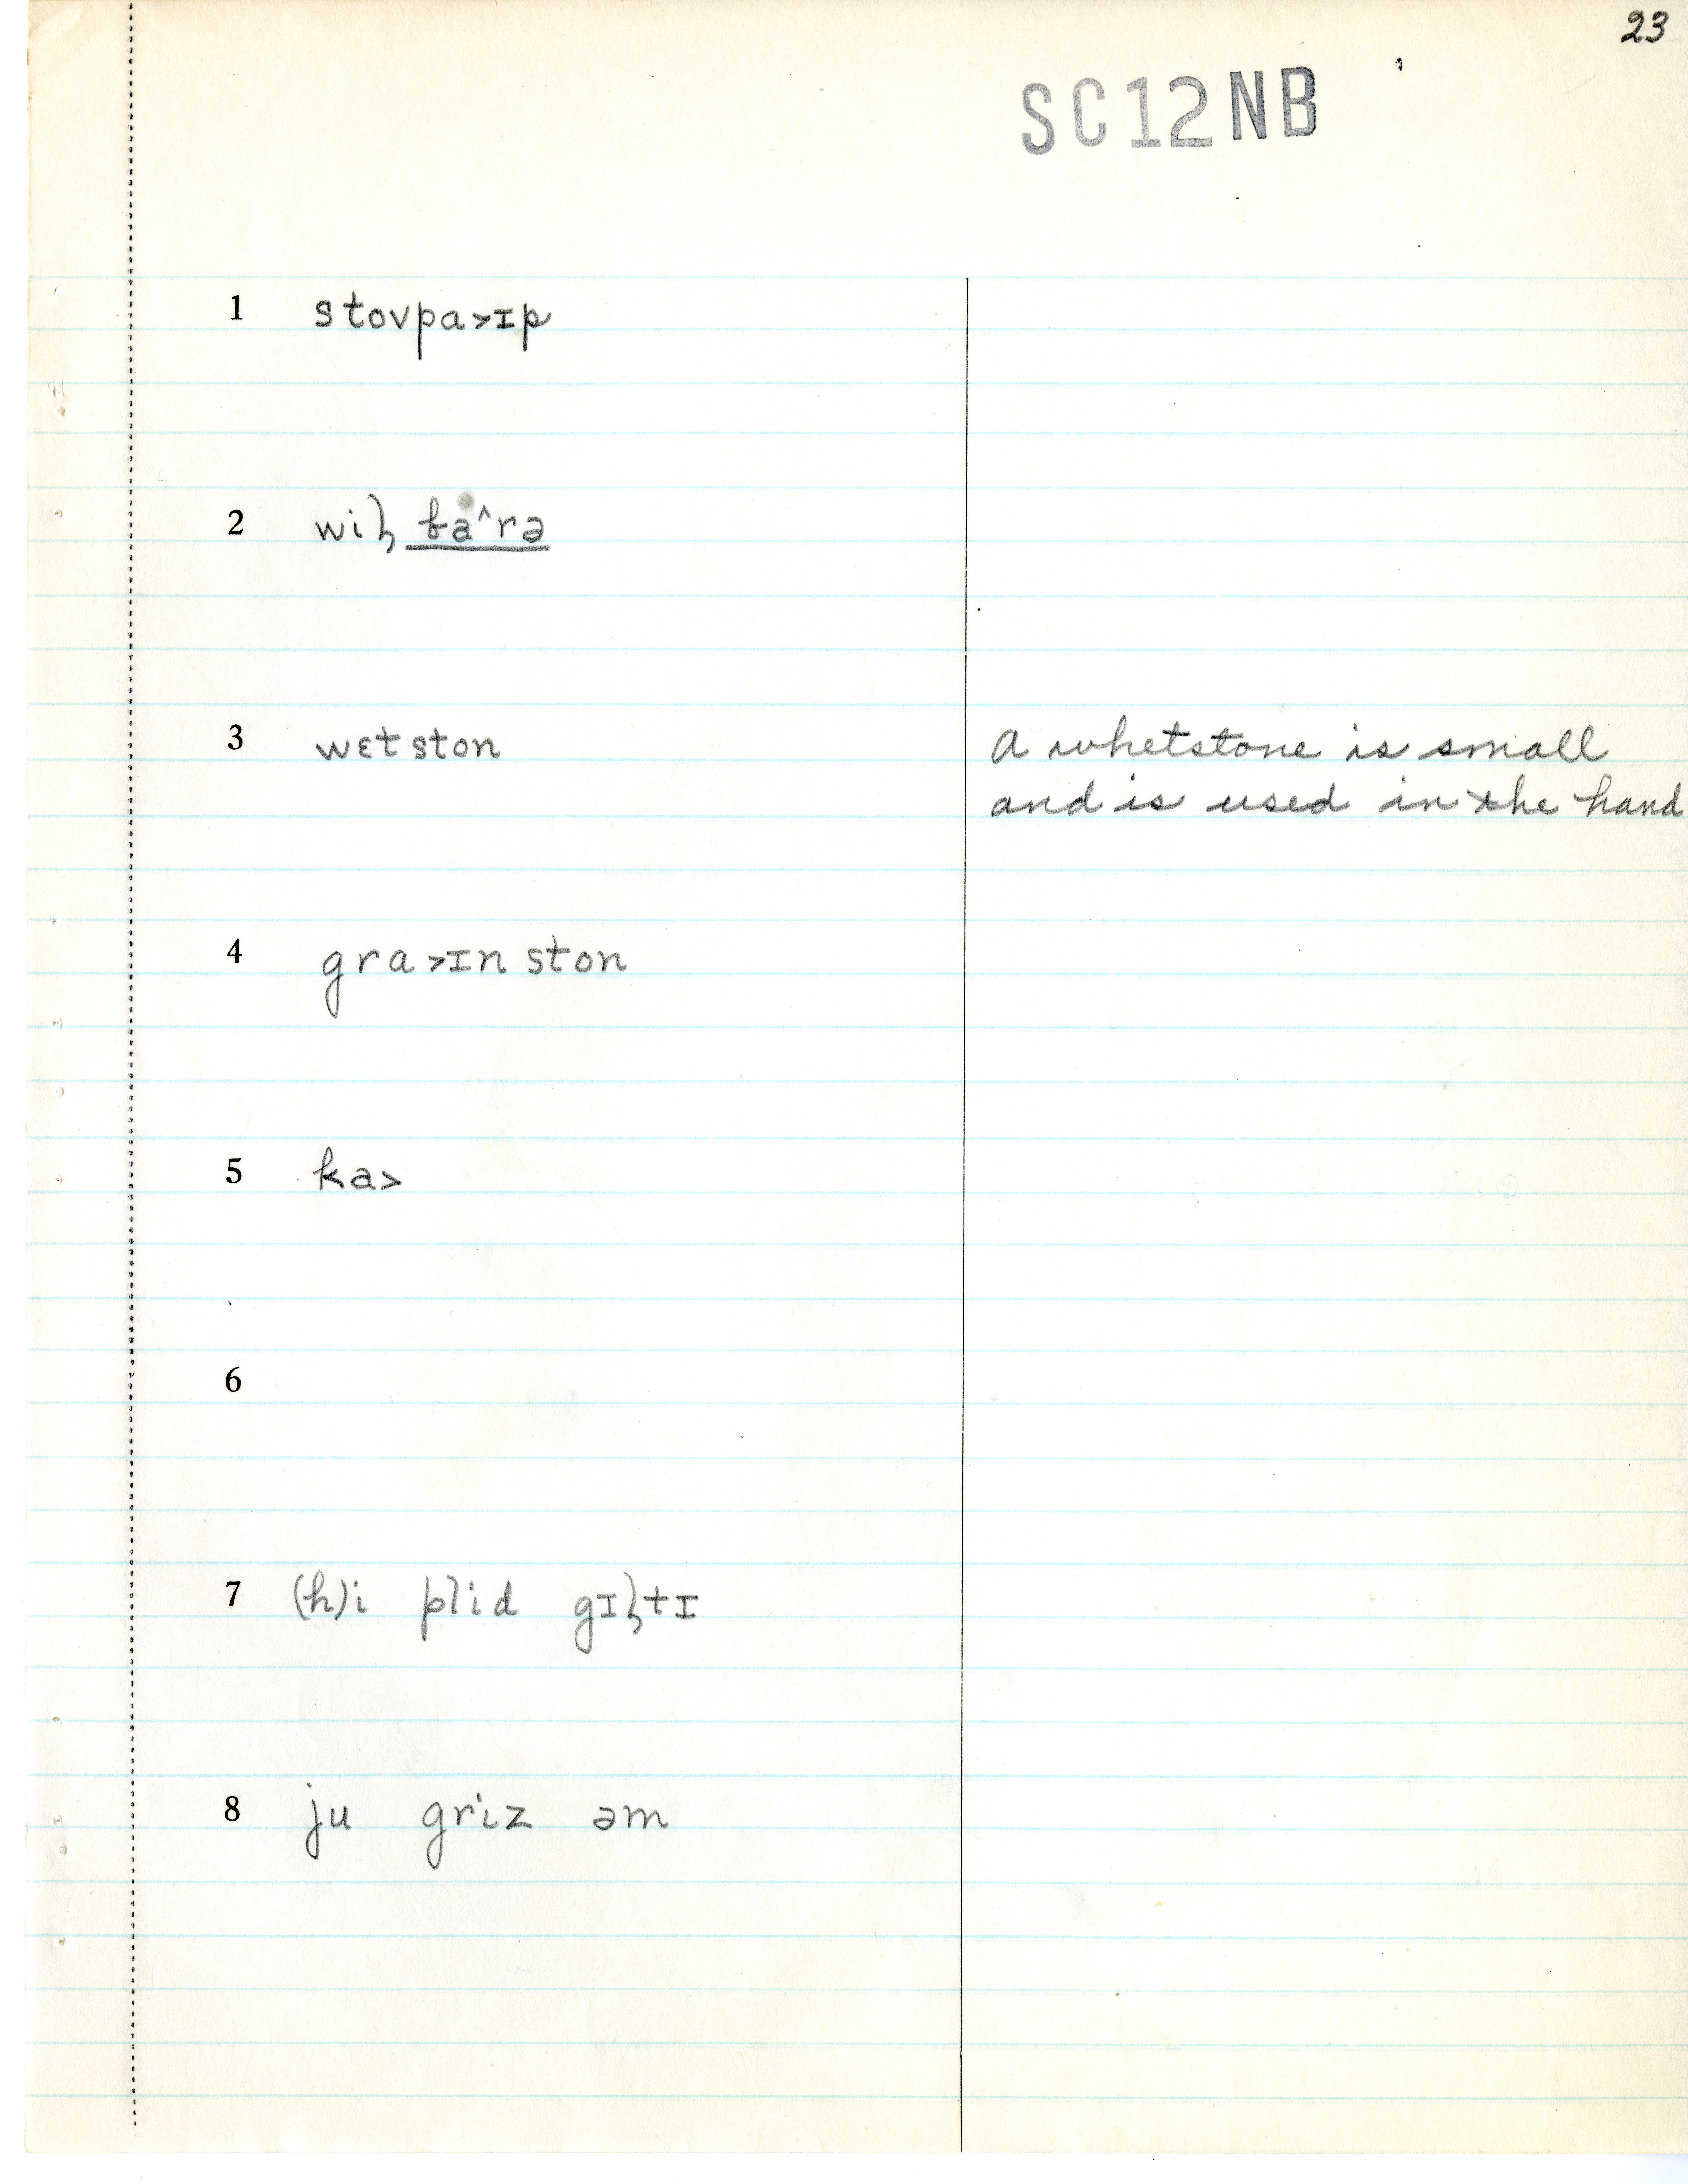 23
SC12NB
1 stovpa>ɪp
2 wiɫ ba^rə
3 wɛtston A whetstone is small
and is used in the hand
4 gra>ɪnston
5 ka>
6
7 (h)i plid gɪɫtɪ
8 ju griz əm